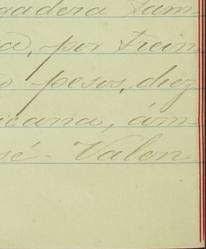 gadera Tam
a, por Trein
o pesos, diez
icana, ám
sé Valen